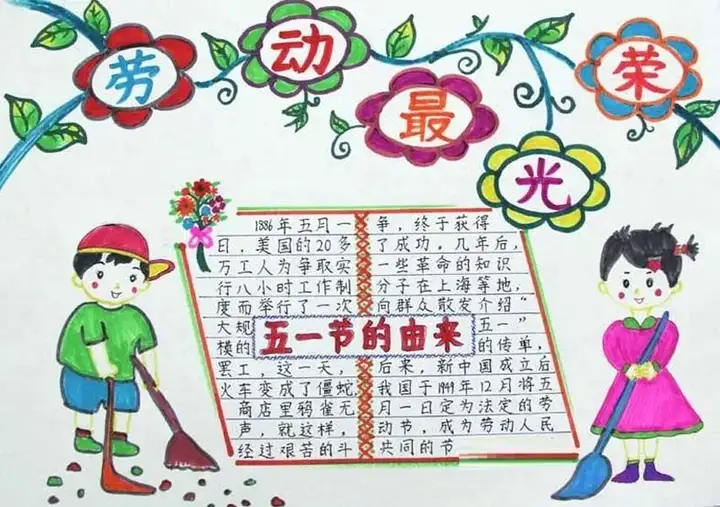 劳动最光荣
五一节的由来
1886年五月一
日，美国的20多
万工人为争取实
行八小时工作制
度而举行了一次
大规
模的
罢工，这一天，
火车变成了僵蛇，
商店里鸦雀无
声，就这样，
经过艰苦的斗
争，终于获得
了成功。几年后，
一些革命的知识
分子在上海等地，
向群众散发介绍“
五一”
的传单，
后来，新中国成立后
我国于1949年12月将五
月一日定为法定的劳
动节，成为劳动人民
共同的节